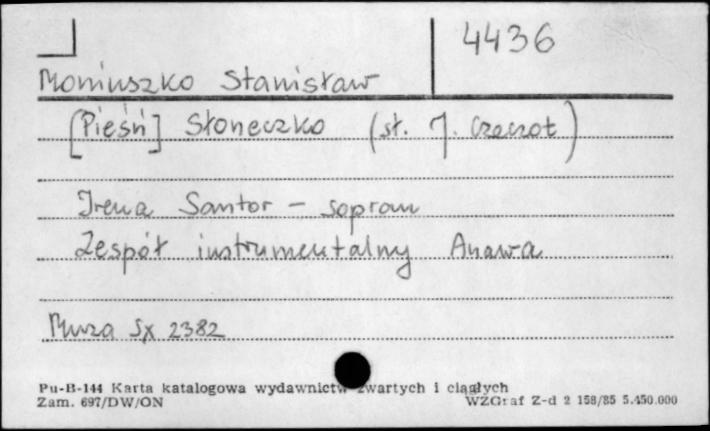 4436
Moniuszko Stanisław
[Pieśń] Słoneczko (sł. J. Czeczot)
Irena Santor - sopran
Zespół instrumentalny Anawa
Muza Sx 2382
Pu-B-144 Karta katalogowa wydawnictw zwartych i ciągłych
Zam. 697/DW/ON WZGraf Z-d 2 158/85 5.450.000